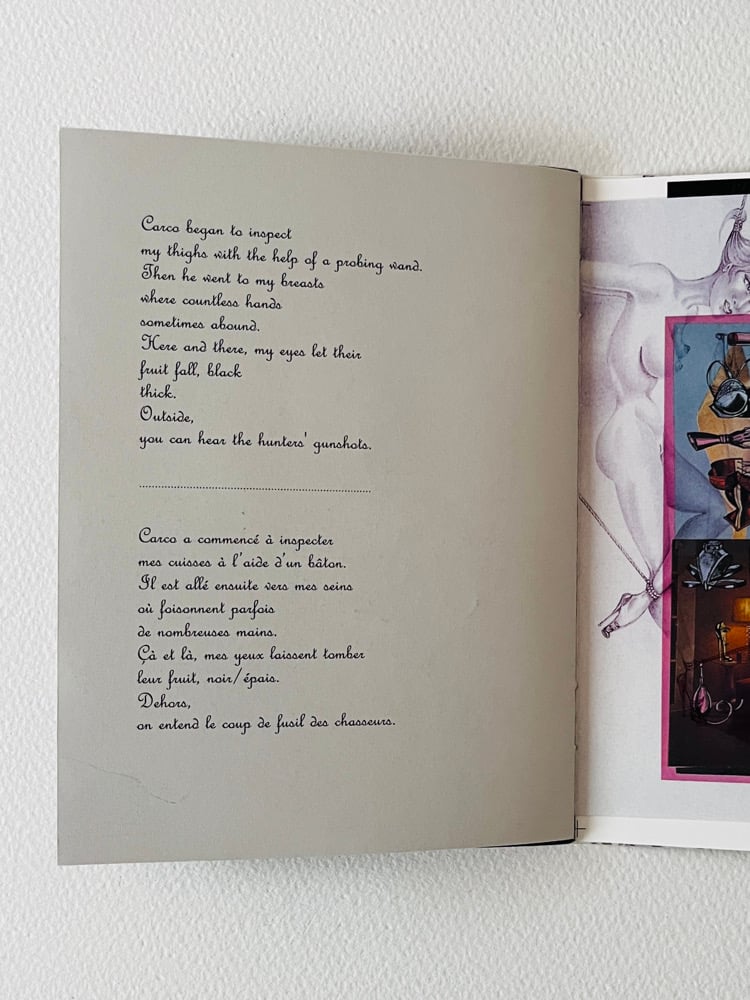 Carco began to inspect
my thighs with the help of a probing wand.
Then he went to my breasts
where countless hands
sometimes abound.
Here and there, my eyes let their
fruit fall, black
thick.
Outside,
you can hear the hunters' gunshots.
Carco a commencé à inspecter
mes cuisses à l'aide d'un bâton.
Il est allé ensuite vers mes seins
où foisonnent parfois
de nombreuses mains.
Çà et là, mes yeux laissent tomber
leur fruit, noir/épais.
Dehors,
on entend le coup de fusil des chasseurs.